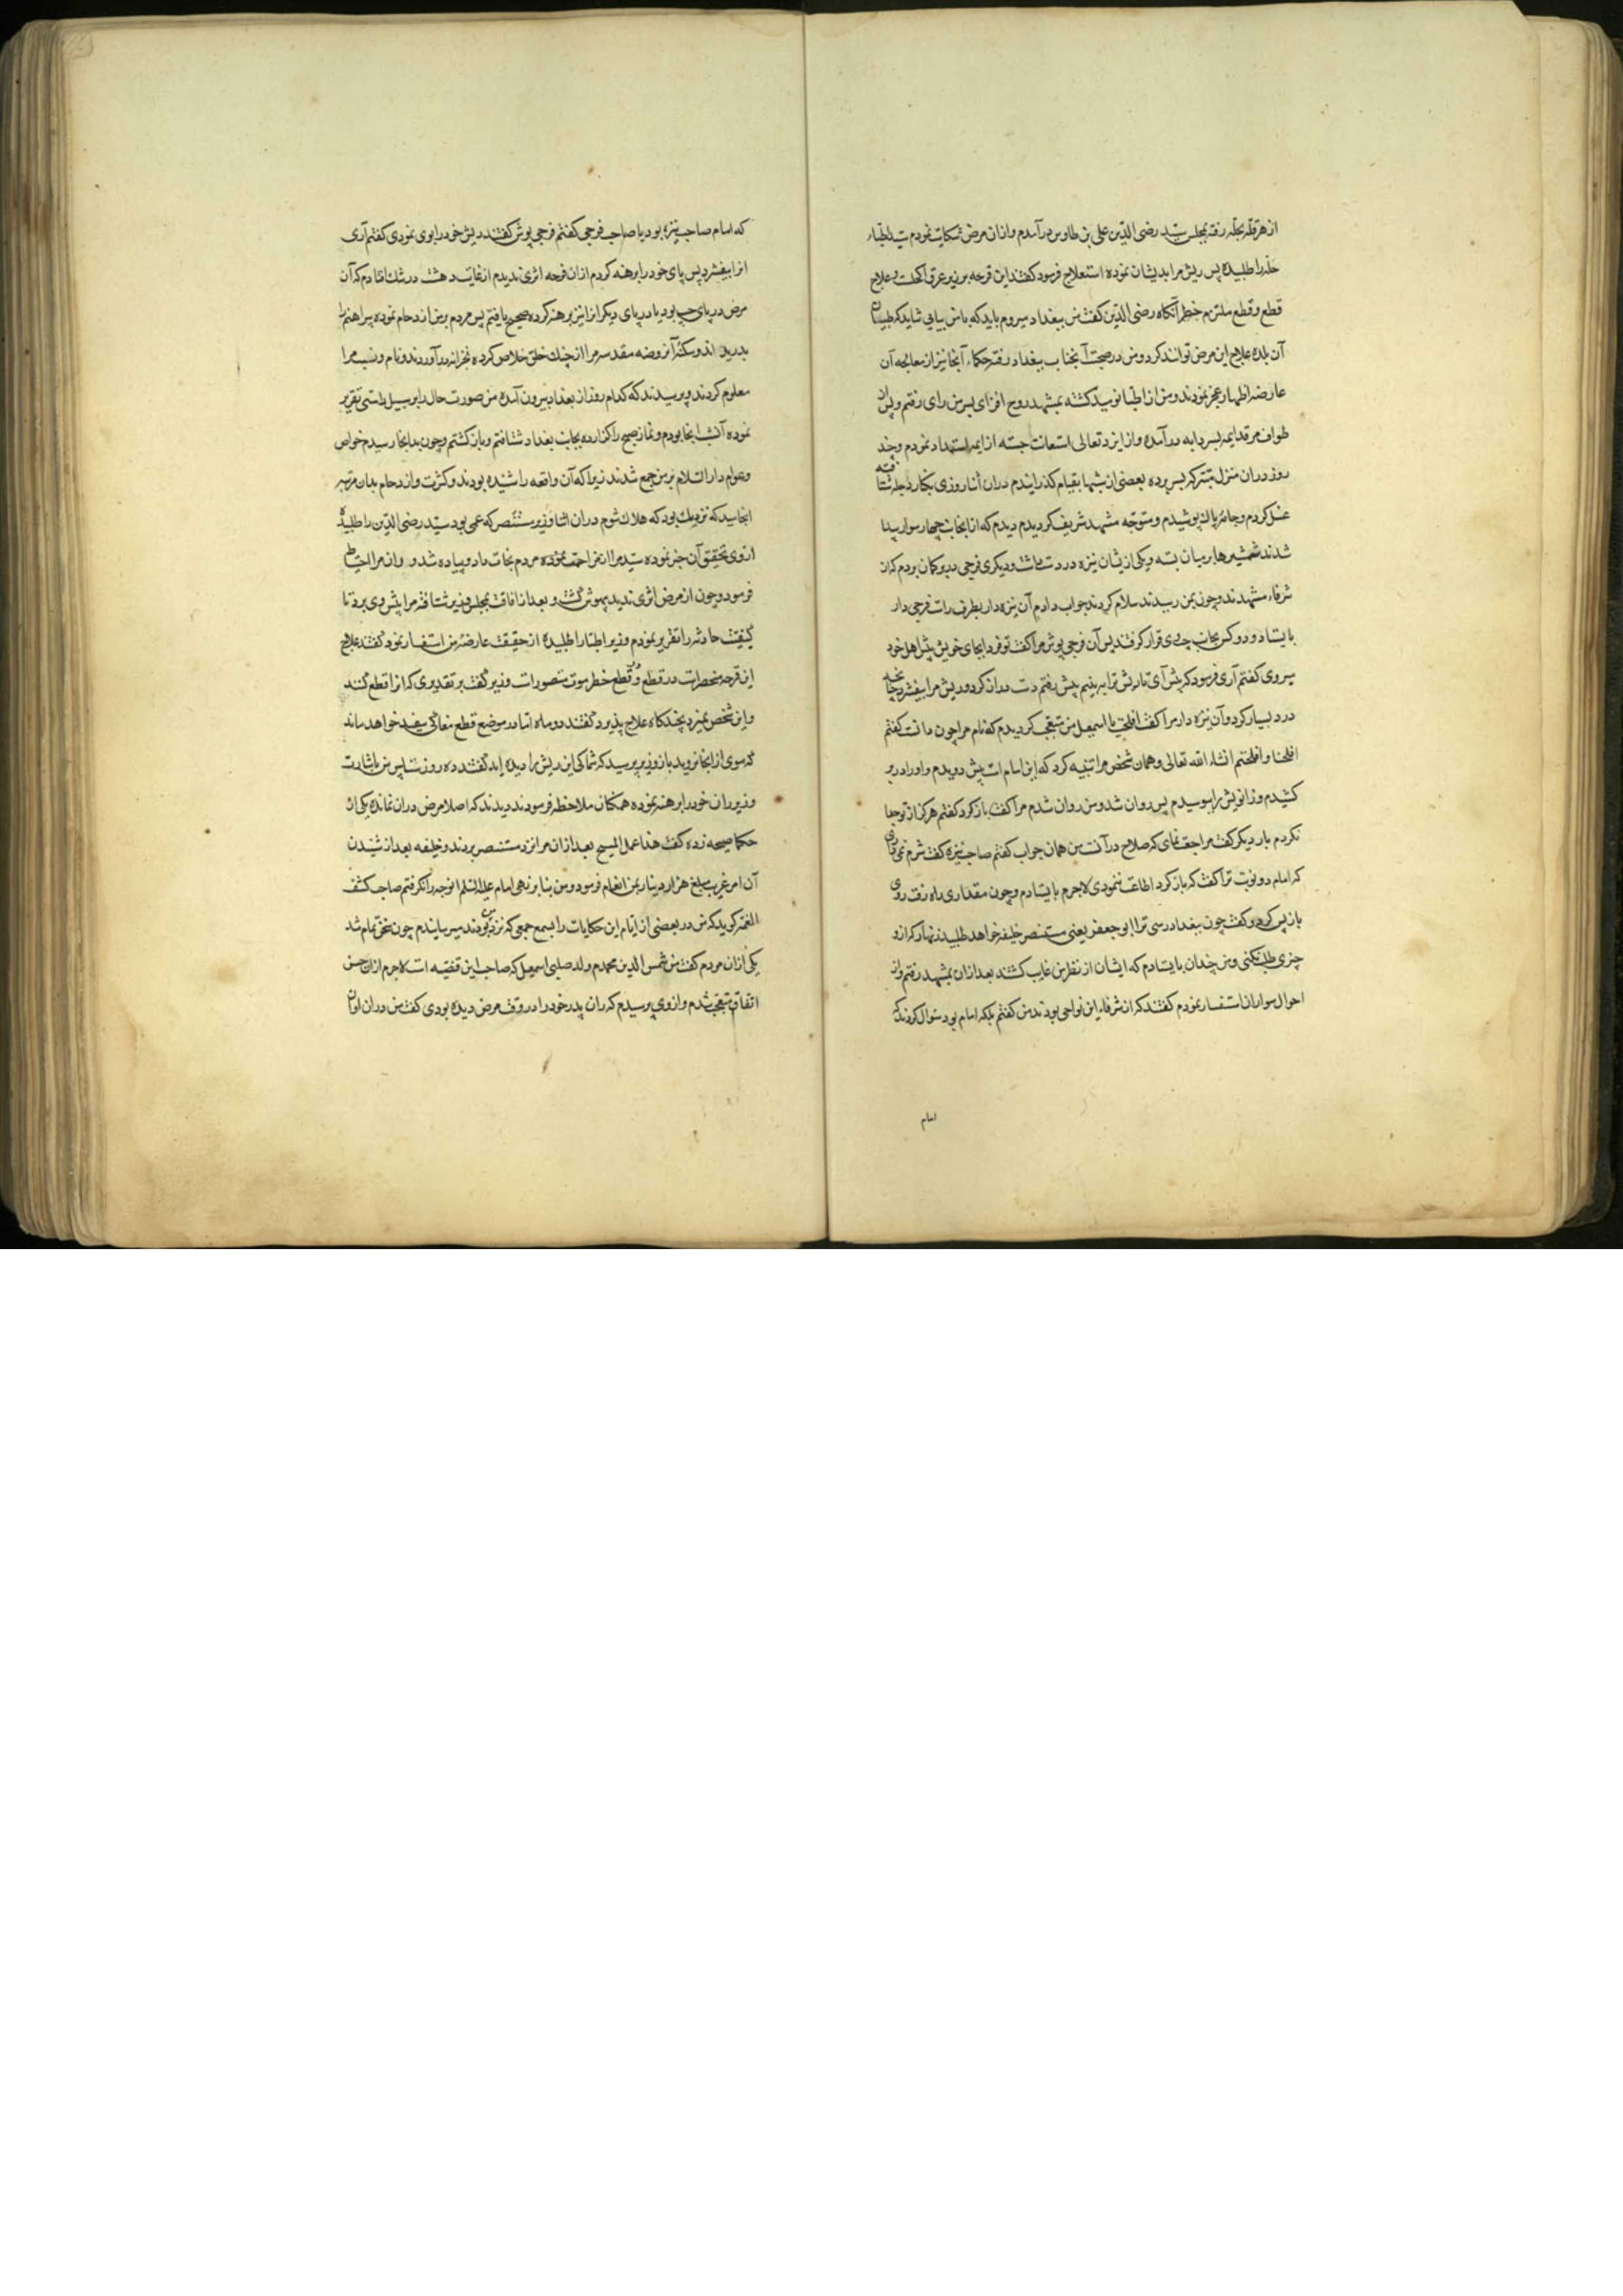 از هرقل بحله رفته بمجلس سید رضی الدین علی بن طاوس درآمدم و ازان مرض شکایت نمودم سید اطباء
حله را طلبیده پس ریش مرا بدیشان نموده استعلاج فرمود گفتند این قرحه بر زبر عرق اکحلست و علاج
قطع و قطع ملتزم خطر آنگاه رضی الدین گفت من ببغداد میروم باید که با من بیایی شاید که طبیبان
آن بلده علاج این مرض توانند کرد و من در صحبت آنجناب ببغداد رفته حکماء آنجا نیز از معالجه آن
عارضه اظهار عجز نمودند و من از اطبا نومید گشته بمشهد روح افزای سرمن رای رفتم و پس از
طواف مرقد ایمه بسردابه درآمده و از ایزد تعالی استعانت جسته از ایمه استمداد نمودم و چند
روز دران منزل متبرک بسر برده بعضی از شبها بقیام گذرانیدم دران اثنا روزی بکنار دجله شتافته
غسل کردم و جامه پاک پوشیدم و متوجه مشهد شریف گردیدم دیدم که ازانجانب چهار سوار پیدا
شدند شمشیرها بر میان بسته و یکی ازیشان نیزه در دست داشت و دیگری فرجی در بر گمان بردم که از
شرفاء مشهدند و چون بمن رسیدند سلام کردند جواب دادم آن نیزه دار بطرف راست فرجی دار
بایستاد و دو کس بجانب چپ وی قرار گرفتند پس آن فرجی پوش مرا گفت تو فردا بجای خویش پیش اهل خود
میروی گفتم آری فرمود که پیش آی تا ریش ترا ببینم پیش رفتم دست دراز کرد و ریش مرا بیفشرد چنانچه
درد بسیار کرد و آن نیزه دار مرا گفت افلحت یا اسمعیل من متعجب گردیدم که نام مرا چون دانست گفتم
افلحنا و افلحتم انشاء الله تعالی و همان شخص مرا تنبیه کرد که این امام است پیش دویدم و او را در بر
کشیدم و زانویش را ببوسیدم پس روان شد و من روان شدم مرا گفت باز گرد گفتم هرگز از تو جدا
نگردم بار دیگر گفت مراجعت نمای که صلاح درآنست من همان جواب گفتم صاحب نیزه گفت شرم نمی داری
که امام دو نوبت ترا گفت که باز گرد اطاعت ننمودی لاجرم بایستادم و چون مقداری راه رفت روی
باز پس کرد و گفت چون ببغداد رسی ترا ابو جعفر یعنی مستنصر خلیفه خواهد طلبید زنهار که ازو
چیزی طلب نکنی و من چندان بایستادم که ایشان از نظر من غایب گشتند بعد ازان بمشهد رفتم و از
احوال سواران استفسار نمودم گفتند که از شرفاء این نواحی بودند من گفتم بلکه امام بود سوال کردند که
امام
که امام صاحب نیزه بود یا صاحب فرجی گفتم فرجی پوش گفتند ریش خود را بوی نمودی گفتم آری
انرا بیفشرد پس پای خود را برهنه کردم ازان قرحه اثری ندیدم از غایت دهشت در شک افتادم که آن
مرض در پای چپ بود یا در پای دیگر انرا نیز برهنه کرده صحیح یافتم پس مردم بر من ازدحام نموده پیراهنم را
بدریدند و سکنه آن روضه مقدسه مرا از چنک خلق خلاص کرده بخزانه درآوردند و نام و نسب مرا
معلوم کردند و پرسیدند که کدام روز از بغداد بیرون آمده من صورت حال را بر سبیل راستی تقریر
نموده آنشب انجا بودم و نماز صبح را گزارده بجانب بغداد شتافتم و باز گشتم و چون بدانجا رسیدم خواص
و عوام دار السلام بر من جمع شدند زیرا که آن واقعه را شنیده بودند و کثرت و ازدحام بدان مرتبه
انجامید که نزدیک بود که هلاک شوم دران اثنا وزیر مستنصر که قمی بود سید رضی الدین را طلبیده
ازوی تحقیق آن خبر نموده سید مرا از مزاحمت مردم نجات داد و پیاده شد و ران مرا احتیاط
فرمود و چون از مرض اثری ندید بیهوش گشت و بعد از افاقت بمجلس وزیر شتافته مرا پیش وی برد تا
کیفیت حادثه را تقریر نمودم وزیر اطبا را طلبیده از حقیقت عارضه من استفسار نمود گفتند علاج
این قرحه منحصرات در قطع و در قطع خطر موت متصورات وزیر گفت بر تقدیری که انرا قطع کنند
و این شخص نمیرد بچند گاه علاج پذیرد گفتند دو ماه اما در موضع قطع مغاکی سفید خواهد ماند
که موی از انجا نروید باز وزیر پرسید که شما کی این ریش را دیده اید گفتند ده روز شد پس من باشارت
وزیر ران خود را برهنه نموده همکنان ملاحظه فرمودند دیدند که اصلا مرض دران نمانده یکی از
حکما صیحه زده گفت هذا عمل المسیح بعد ازان مرا نزد مستنصر بردند و خلیفه بعد از شنیدن
آن امر غریب مبلغ هزار دینار بمن انعام فرمود و من بنا بر نهی امام علیه السلم انوجه را نگرفتم صاحب کشف
الغمه گوید که من در بعضی از ایام این حکایات را بسمع جمعی که نزد من بودند میرسانیدم چون سخن تمام شد
یکی ازان مردم گفت من شمس الدین محمدم ولد صلبی اسمعیل که صاحب این قضیه است لاجرم ازان حسن
اتفاق متعجب شدم و از وی پرسیدم که ران پدر خود را در وقت مرض دیده بودی گفت من دران اوان